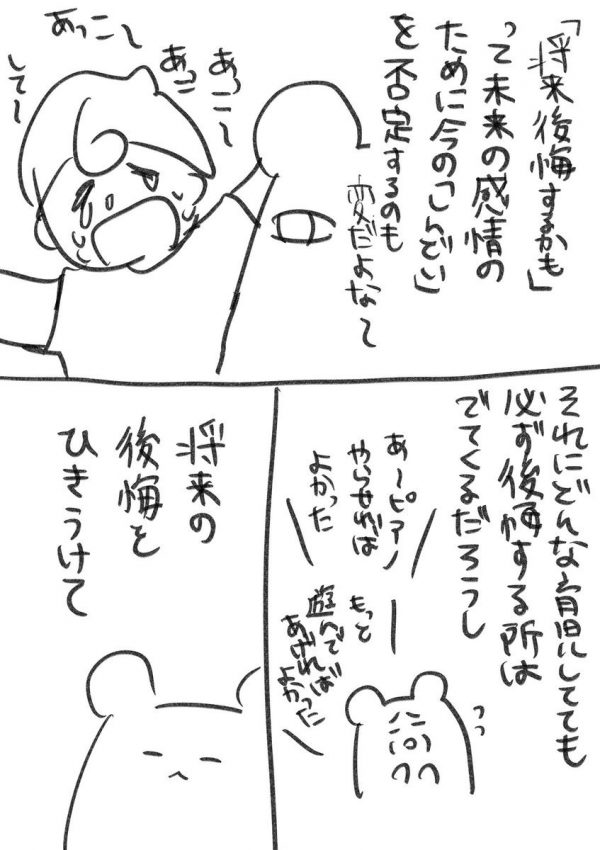 「将来後悔するかも」
って未来の感情の
ために今の「しんどい」
を否定するのも
変だよな〜
あっこ〜
あっこ〜
あっこ〜
して〜
それにどんな育児してても
必ず後悔する所は
でてくるだろうし
あ〜ピアノ
やらせれば
よかった
もっと
遊んで
あげれば
よかった
将来の
後悔を
ひきうけて